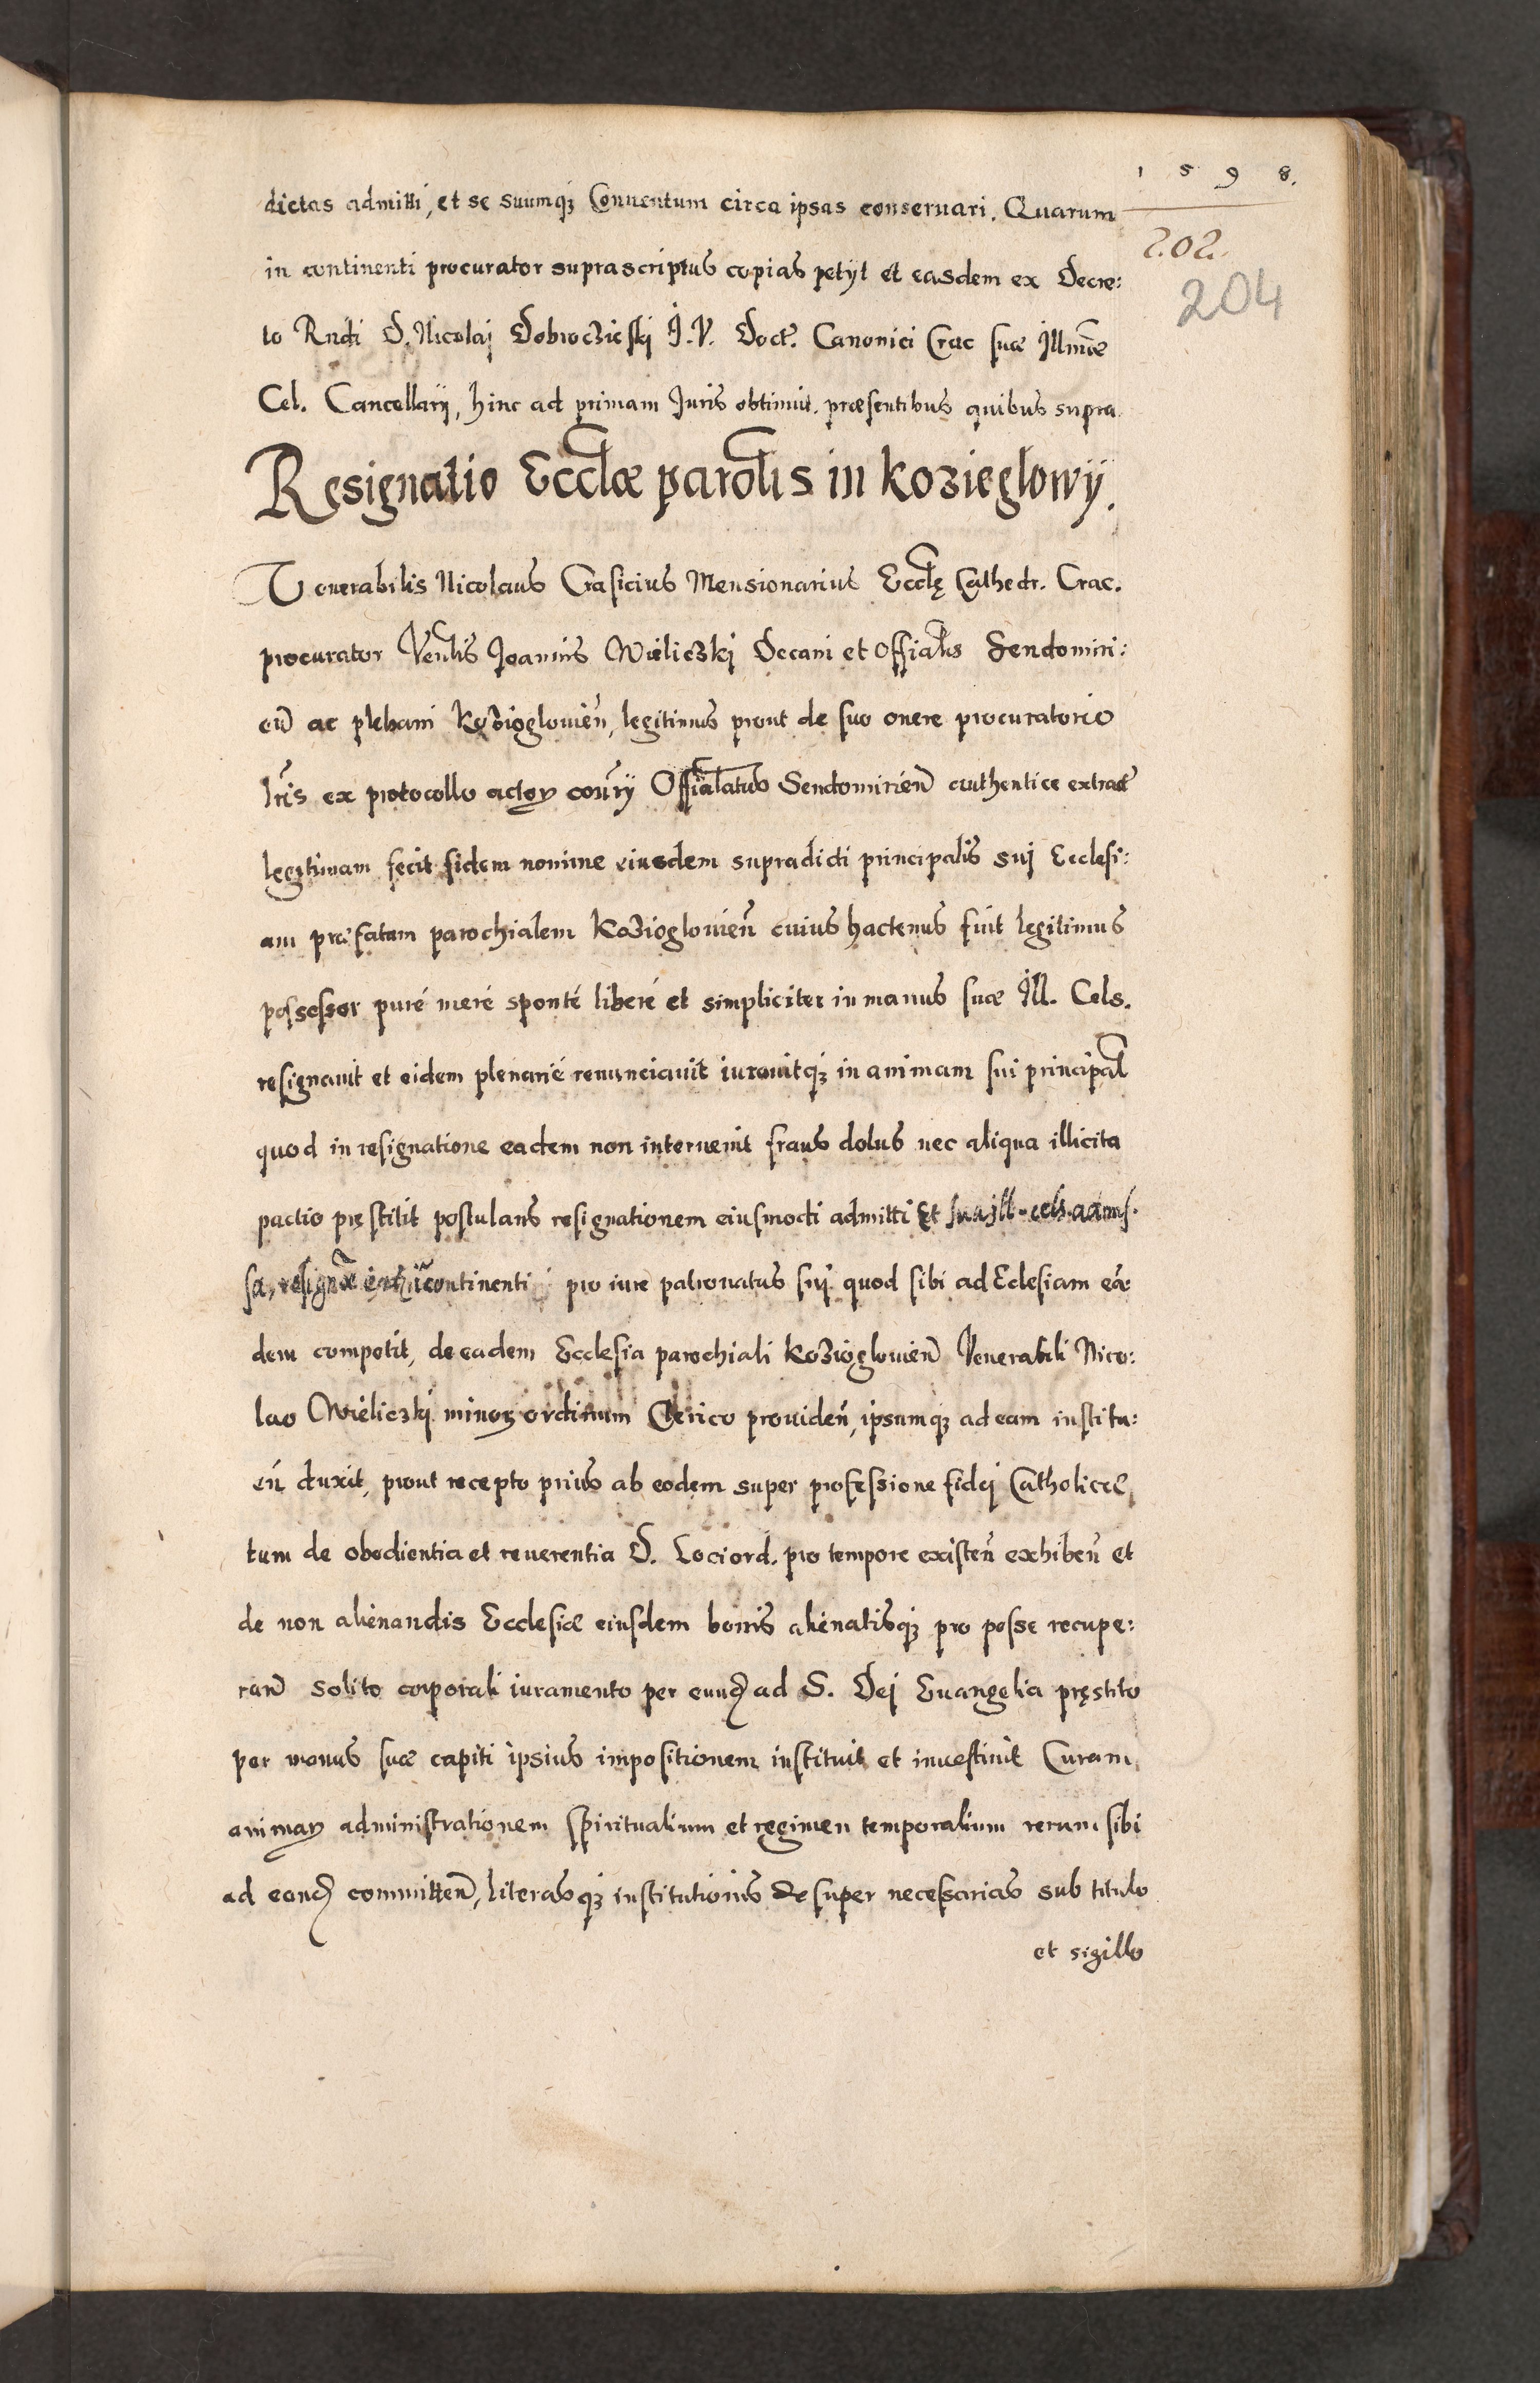 1 5 9 8.
202.
204
dictas admitti, et se suumq₃ Conuentum circa ipsas conseruari. Quarum
in continenti procurator suprascriptus copias petijt et easdem ex Decre:
to Rndi D. Nicolai Dobroczieski J. V. Doct. Canonici Crac suæ Illmæ
Cel. Cancellarij, hinc ad primam Juris obtinuit. præsentibus quibus supra.
Resignatio Ecclæ parolis in Kozieglowy.
Venerabilis Nicolaus Crasicius Mensionarius Ecclę Cathedr. Crac.
procurator Venlis Joannis Wieliczki Decani et Offialis Sendomiri:
eñ ac plebani Kozioglouień, legitimus prout de suo onere procuratorio
lris ex protocollo actoꝝ conrij Offialatus Sendomirień authentice extract
legitimam fecit fidem nomine eiusdem supradicti principalis sui Ecclesi:
am præfatam parochialem Kozioglouień cuius hactenus fuit legitimus
possessor purè merè spontè liberè et simpliciter in manus suæ Ill. Cels.
resignauit et eidem plenariè renunciauit iurauitq₃ in animam sui principal
quod in resignatione eadem non interuenit fraus dolus nec aliqua illicita
pactio pręstitit postulans resignationem eiusmodi admitti Et sua ill. cels. admis.
sa, resignõe continenti pro iure patronatus sui quod sibi ad Eclesiam eã
dem competit, de eadem Ecclesia parochiali Kozioglouień Venerabili Nico:
lao Wieliczki minoꝝ ordinum Clerico prouideñ, ipsumq₃ ad eam institu:
eñ duxit, prout recepto prius ab eodem super professione fidei Catholicæ,
tum de obedientia et reuerentia D. Loci ord. pro tempore existeñ exhibeñ et
de non alienandis Ecclesiæ eiusdem bonis alienatisq₃ pro posse recupe:
rañ solito corporali iuramento per eund ad S. Dei Euangelia pręstito
per manus suæ capiti ipsius impositionem instituit et inuestiuit Curam
animaꝝ administrationem spiritualium et regimen temporalium rerum sibi
ad eand committeñ, literasq₃ institutionis desuper necessarias sub titulo
et sigillo